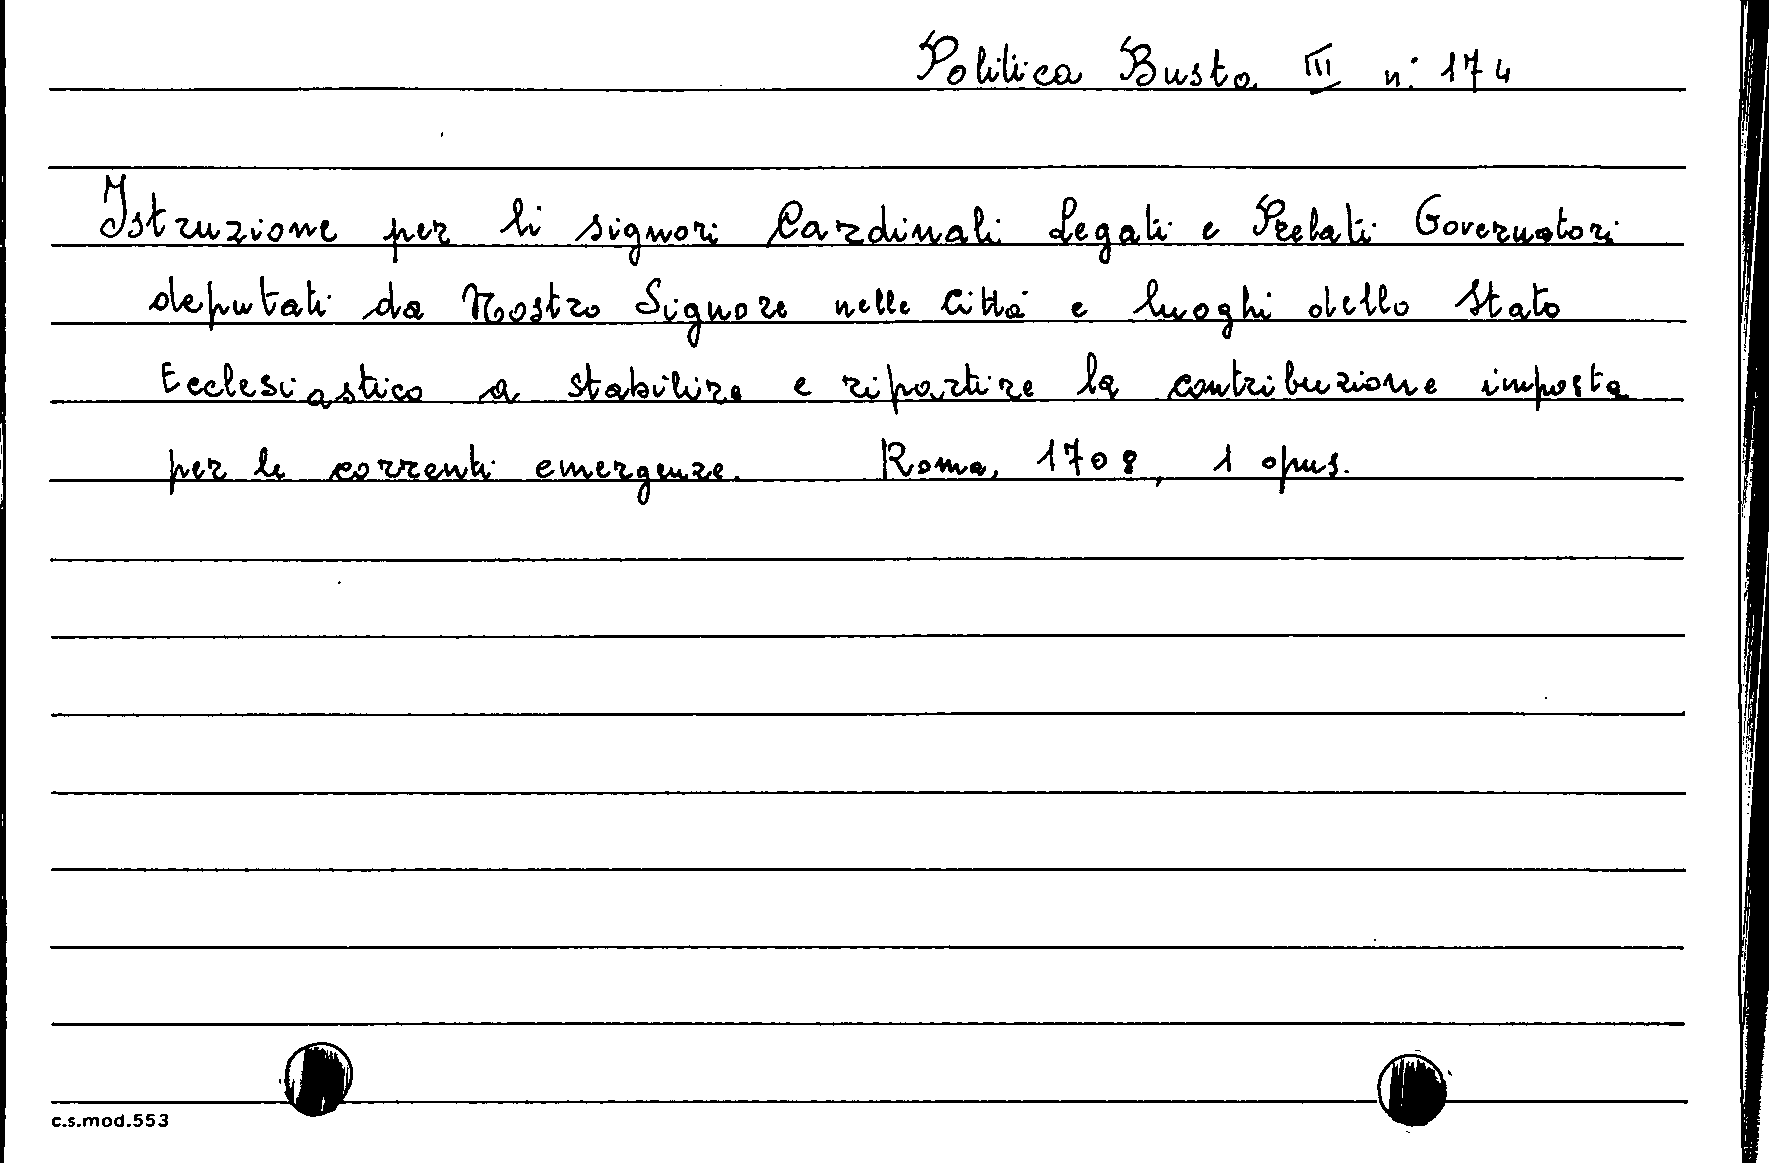 Politica Busta III n: 174
Istruzione per li signori Cardinali Legati e Prelati Governatori
deputati da Nostro Signore nelle Città e luoghi dello Stato
Ecclesiastico a stabilire e ripartire la contribuzione imposta
per le correnti emergenze. Roma, 1708, 1 opus.
c.s.mod.553